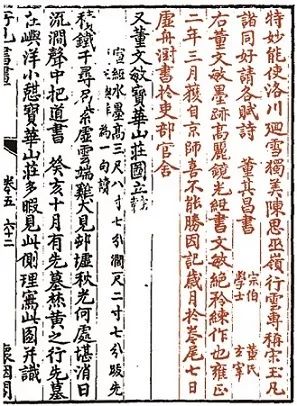 特妙能使洛川廻雪獨美陳思巫嶺行雲專稱宋玉凡
諸同好請各賦詩 董其昌書 宗伯學士 董氏玄宰
右董文敏墨跡高麗鏡光紙書文敏絕矜練作也雍正
二年三月獲自京師喜不能勝因記歲月於卷尾七日
虛舟澍書於吏部官舍
又董文敏寶華山莊圖立
水墨高三尺八寸七分濶一尺二寸七分跋先
為一句讀
鐵千尋虛雲端雞犬見邨墟秋光何處堪消日
澗聲中把道書 癸亥十月有先墓焚黄之行先墓
在嶼洋小憩寶華山莊多暇見此側理寫此圖并識
卷五 六十二